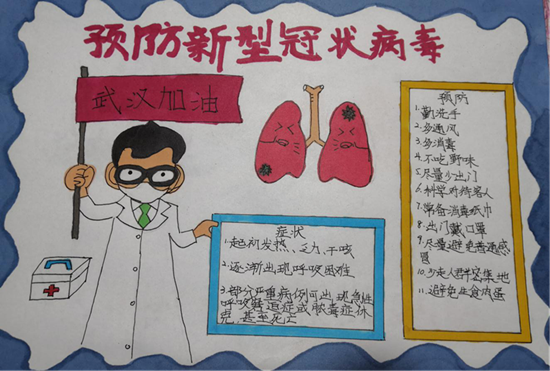 预防新型冠状病毒
武汉加油
症状
1.起初发热、乏力、干咳
2.逐渐出现呼吸困难
3.部分严重病例可出现急性
呼吸窘迫症或脓毒症休
克,甚至死亡
预防
1.勤洗手
2.多通风
3.多消毒
4.不吃野味
5.尽量少出门
6.科学对待客人
7.常备消毒纸巾
8.出门戴口罩
9.尽量避免普通感
冒
10.少走人群密集地
11.避免生食肉蛋